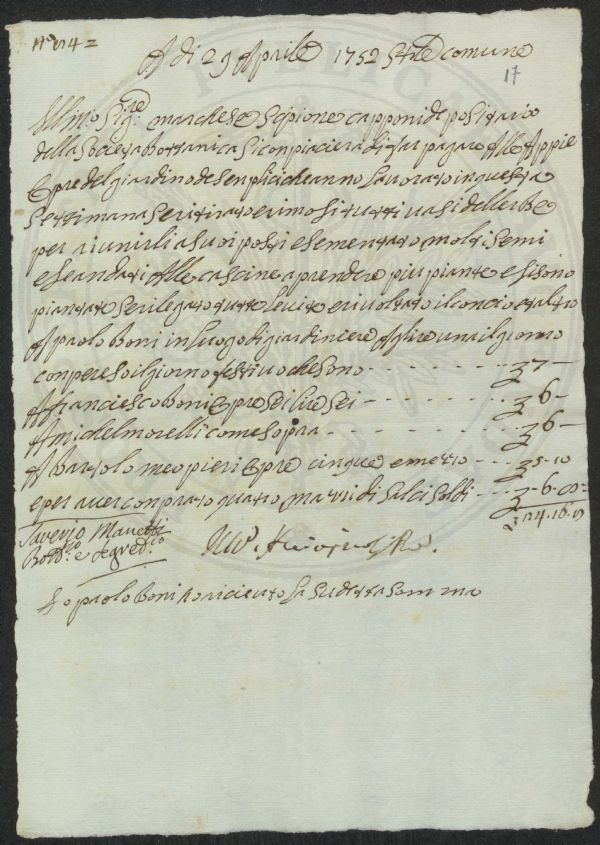 A di 29 Aprile 1752 Stile comune
17
Ill.mo Sig.re marchese Scipione capponi depositario
della Società bottanica si conpiacierà di far pagare Alle Appie
Opre del giardino de senplici che anno lavorato in questa
Settimana Se ritirato e rimosi tutti vasi dellerbe
per riunirli a suoi posti e sementato molti Semi
e Se andati Alle cascine a prendere più piante e si sono
piantate Se rilegato tutte le vite e rivoltato il concio et altro
A paolo boni in luogo di giardiniere A lire una il giorno
conpreso il giorno festivo che sono - - - - - - - 7 -
A franciesco boni Opre Sei lire Sei - - - - - - - 6 -
A michel morelli come sopra - - - - - - - 6 -
A bartolomeo pieri Opre cinque e mezzo - - - - 5 - 10
e per aver conprato quatro mazzi di Salci Soldi - - - - 6 -
Saverio Manetti
Io paolo boni o riceuto la Sudetta Somma